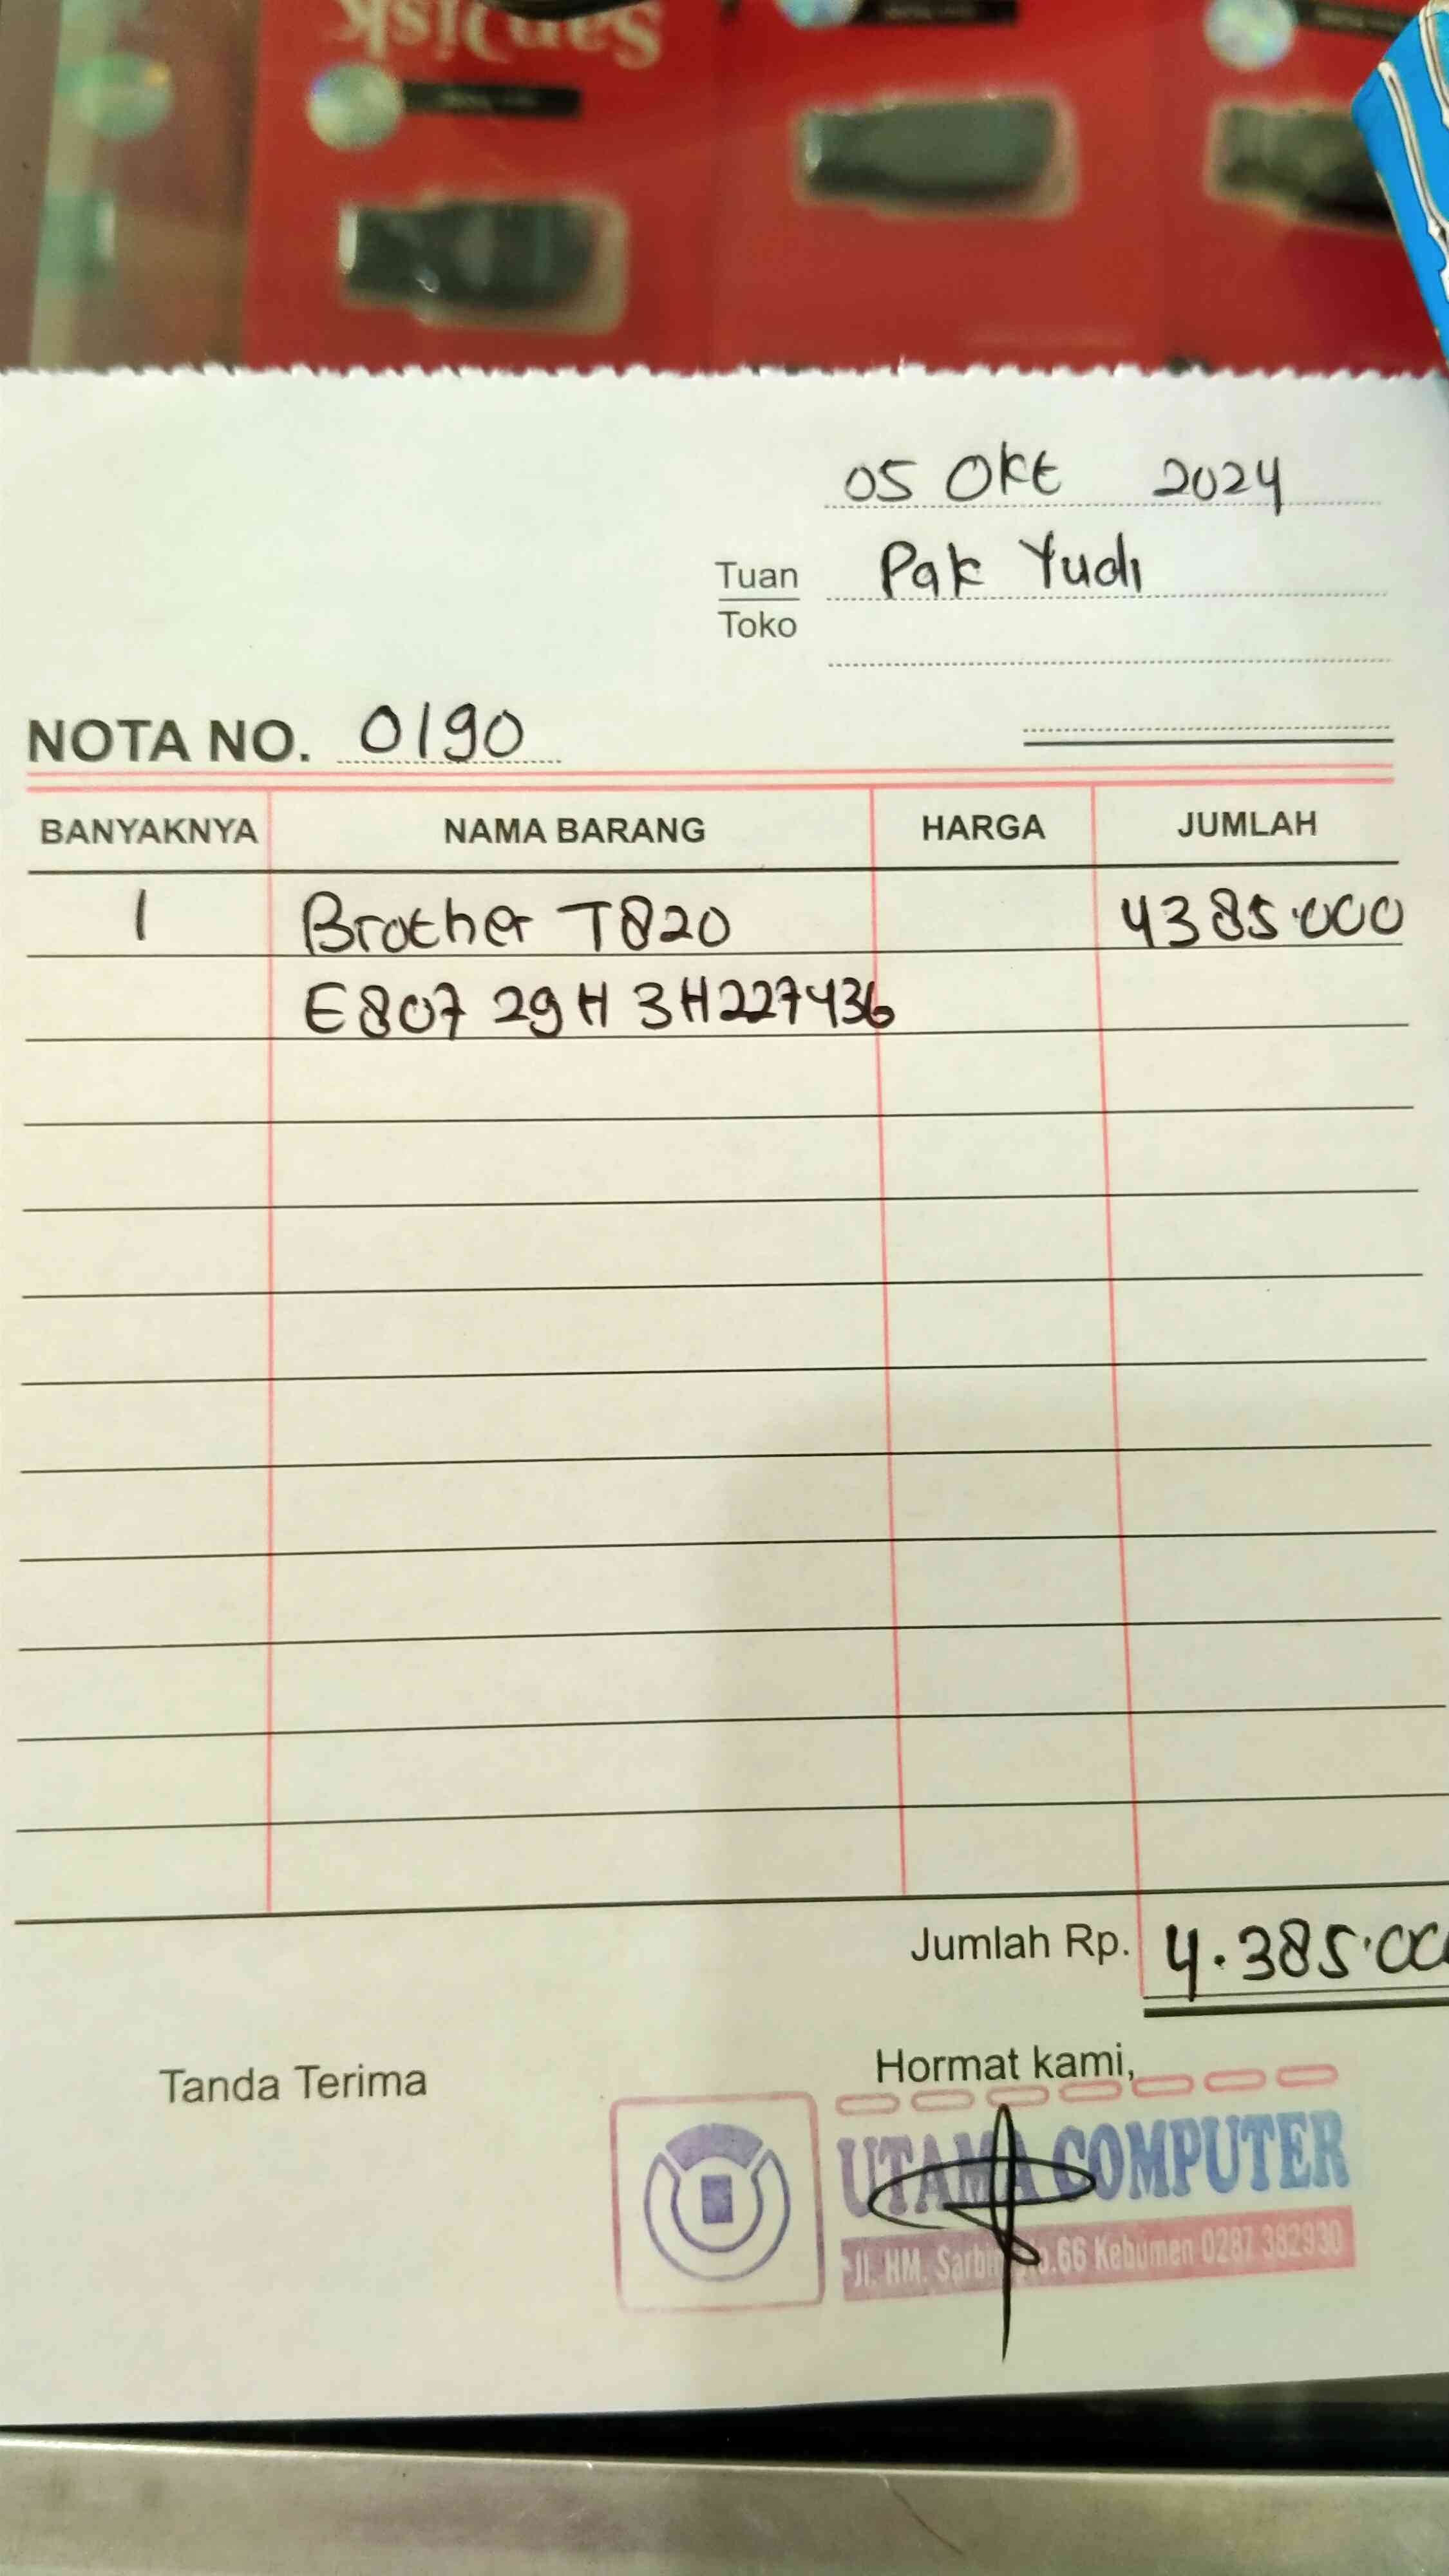 SanDisk
05 Okt 2024
Tuan Pak Yudi
Toko
NOTA NO. 0190
BANYAKNYA NAMA BARANG HARGA JUMLAH
1 Brother T820 4385.000
E80729H3H227436
Jumlah Rp. 4.385.00
Tanda Terima Hormat kami,
UTAMA COMPUTER
Jl. HM. Sarbini No.66 Kebumen 0287 382930